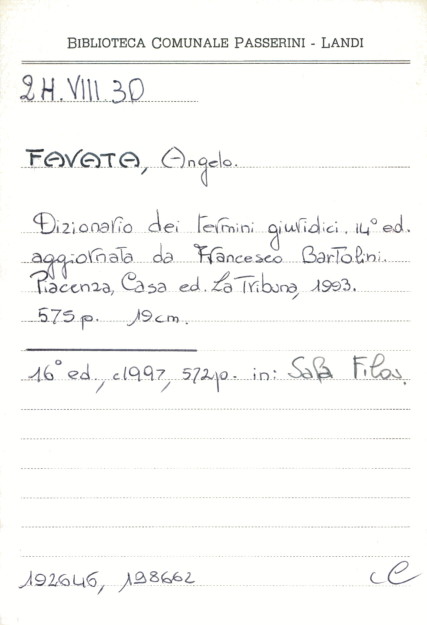 BIBLIOTECA COMUNALE PASSERINI - LANDI
2H.VIII.30
FAVATA, Angelo.
Dizionario dei termini giuridici. 14° ed.
aggiornata da Francesco Bartolini.
Piacenza, Casa ed. La Tribuna, 1993.
575 p. 19 cm.
16° ed., c1997, 572 p. in: Sala Filos.
192646, 198662